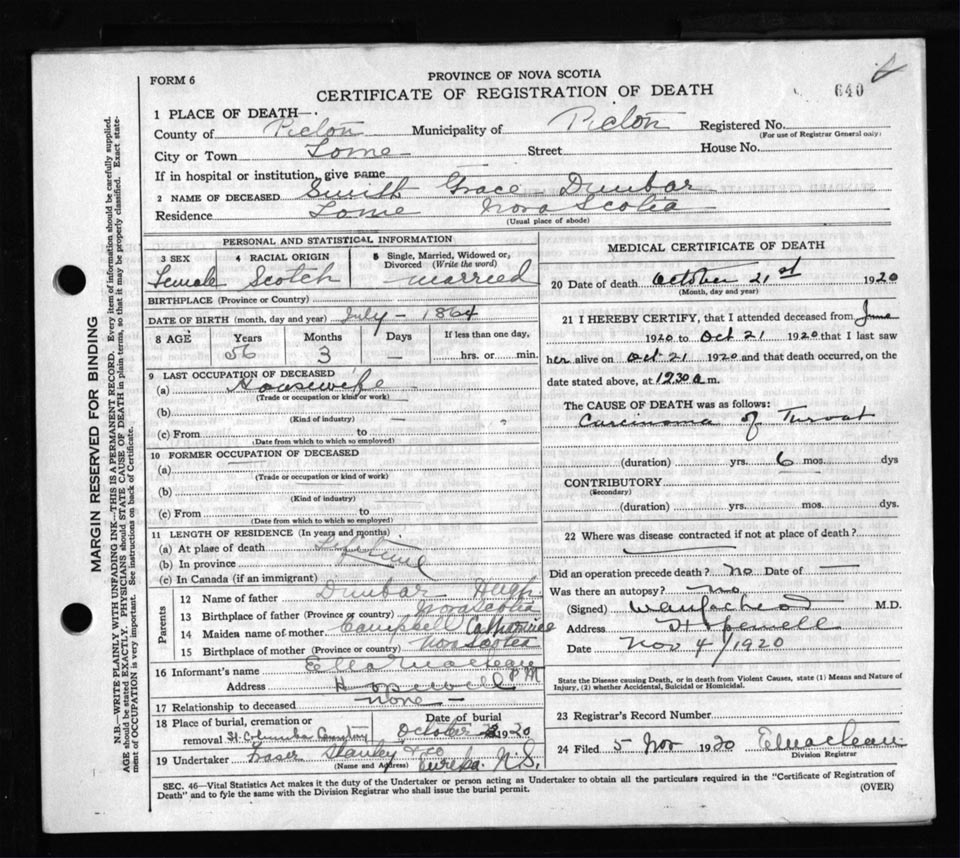 FORM 6
PROVINCE OF NOVA SCOTIA
CERTIFICATE OF REGISTRATION OF DEATH
640
1 PLACE OF DEATH—
County of Pictou Municipality of Pictou Registered No.
(For use of Registrar General only)
City or Town Lorne Street House No.
If in hospital or institution, give name
2 NAME OF DECEASED Smith Grace Dunbar
Residence Lorne Nova Scotia
(Usual place of abode)
MARGIN RESERVED FOR BINDING
N.B.—WRITE PLAINLY WITH UNFADING INK—THIS IS A PERMANENT RECORD. Every item of information should be carefully supplied.
AGE should be stated EXACTLY. PHYSICIANS should STATE CAUSE OF DEATH in plain terms, so that it may be properly classified. Exact state-
ment of OCCUPATION is very important. See instructions on back of Certificate.
PERSONAL AND STATISTICAL INFORMATION
3 SEX
Female
4 RACIAL ORIGIN
Scotch
5 Single, Married, Widowed or
Divorced (Write the word)
married
BIRTHPLACE (Province or Country)
DATE OF BIRTH (month, day and year) July — 1864
8 AGE Years Months Days If less than one day,
56 3 — hrs. or min.
9 LAST OCCUPATION OF DECEASED
(a) Housewife
(Trade or occupation or kind of work)
(b) —
(Kind of industry)
(c) From to
(Date from which to which so employed)
10 FORMER OCCUPATION OF DECEASED
(a) —
(Trade or occupation or kind of work)
(b)
(Kind of industry)
(c) From to
(Date from which to which so employed)
11 LENGTH OF RESIDENCE (In years and months)
(a) At place of death Lifetime
(b) In province
(c) In Canada (if an immigrant)
Parents
12 Name of father Dunbar Hugh
13 Birthplace of father (Province or country) Nova Scotia
14 Maiden name of mother Campbell Catharine
15 Birthplace of mother (Province or country) Nova Scotia
16 Informant's name Ella MacLean P M
Address Hopewell
17 Relationship to deceased none
18 Place of burial, cremation or Date of burial
removal St Columba Cemetery October 1920
19 Undertaker Fraser Stanley & Co
(Name and Address) Eureka N.S.
MEDICAL CERTIFICATE OF DEATH
20 Date of death October 21st 1920
(Month, day and year)
21 I HEREBY CERTIFY, that I attended deceased from June
1920 to Oct 21 1920 that I last saw
her alive on Oct 21 1920 and that death occurred, on
date stated above, at 12.30 a m.
The CAUSE OF DEATH was as follows:
Carcinoma of Throat
(duration) yrs. 6 mos. dys
CONTRIBUTORY
(Secondary)
(duration) yrs. mos. dys.
22 Where was disease contracted if not at place of death?
Did an operation precede death? No Date of —
Was there an autopsy? No
(Signed) M.D.
Address Hopewell
Date Nov 4/1920
State the Disease causing Death, or in death from Violent Causes, state (1) Means and Nature of
Injury, (2) whether Accidental, Suicidal or Homicidal.
23 Registrar's Record Number
24 Filed 5 Nov 1920 E Maclean
Division Registrar
SEC. 46—Vital Statistics Act makes it the duty of the Undertaker or person acting as Undertaker to obtain all the particulars required in the "Certificate of Registration of
Death" and to fyle the same with the Division Registrar who shall issue the burial permit.
(OVER)